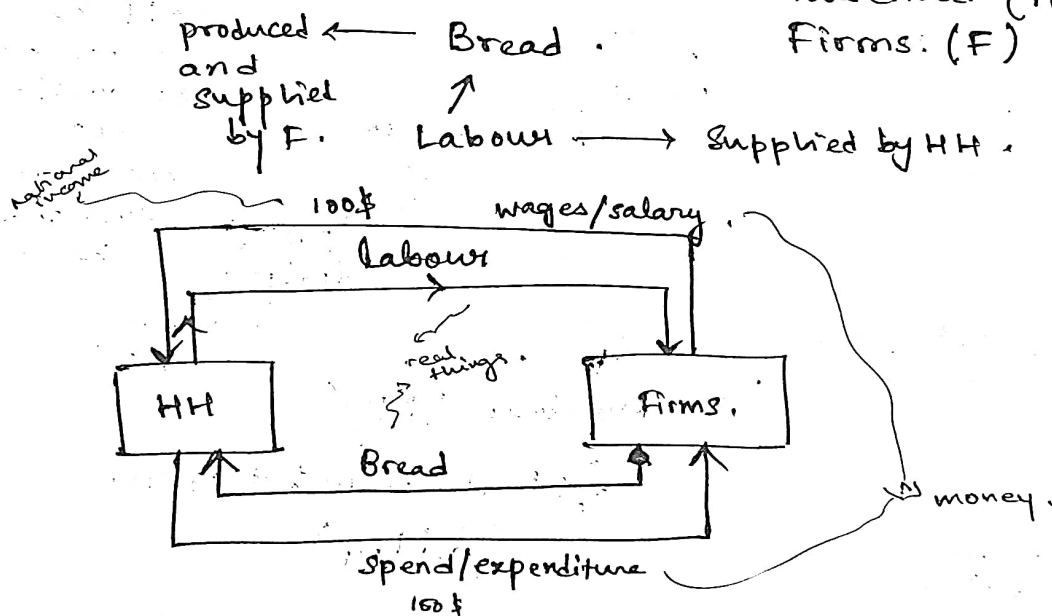 produced ← Bread .
and
supplied
by F.
Firms. (F)
↗
Labour → Supplied by HH .
national
income
100$ wages/salary .
Labour
real
things.
HH
Firms.
Bread
money.
Spend/expenditure
100$